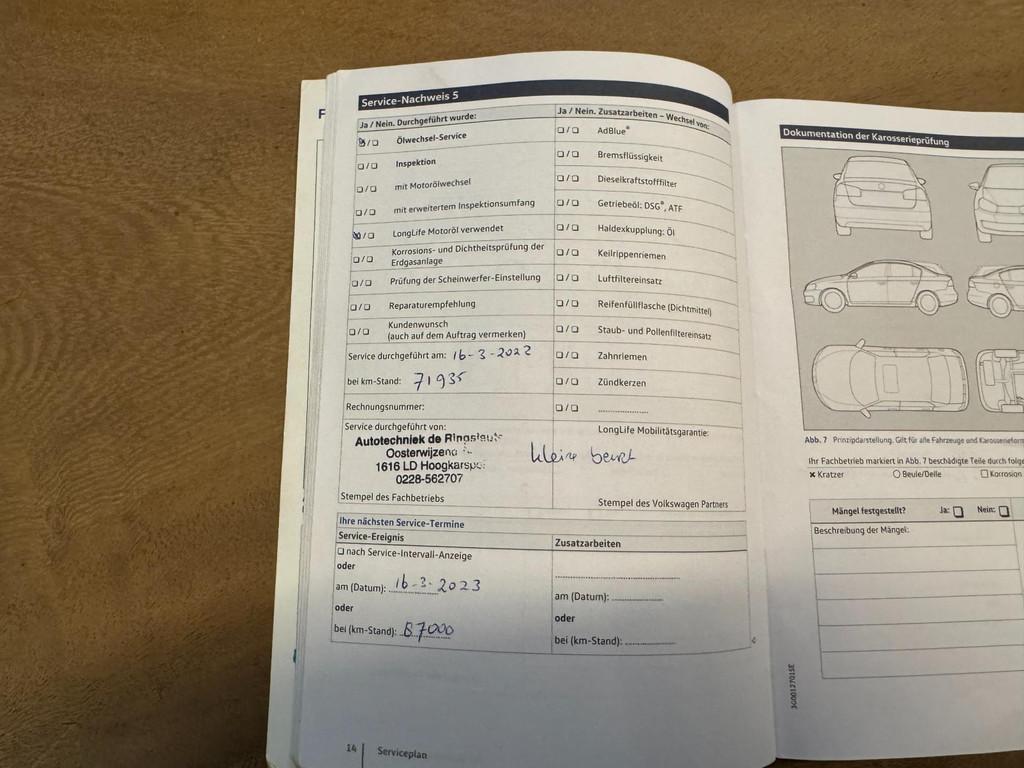 Service-Nachweis 5
Ja / Nein. Durchgeführt wurde:
Ölwechsel-Service
Inspektion
mit Motorölwechsel
mit erweitertem Inspektionsumfang
LongLife Motoröl verwendet
Korrosions- und Dichtheitsprüfung der
Erdgasanlage
Prüfung der Scheinwerfer-Einstellung
Reparaturempfehlung
Kundenwunsch
(auch auf dem Auftrag vermerken)
Service durchgeführt am: 16-3-2022
bei km-Stand: 71935
Rechnungsnummer:
Service durchgeführt von:
Autotechniek de
Hoogkarspel
1616 LD Hoogkarspel
0228-562707
Stempel des Fachbetriebs
Ja / Nein. Zusatzarbeiten – Wechsel von:
AdBlue®
Bremsflüssigkeit
Dieselkraftstofffilter
Getriebeöl: DSG®, ATF
Haldexkupplung: Öl
Keilrippenriemen
Luftfiltereinsatz
Reifenfüllflasche (Dichtmittel)
Staub- und Pollenfiltereinsatz
Zahnriemen
Zündkerzen
LongLife Mobilitätsgarantie:
kleine beurt
Stempel des Volkswagen Partners
Ihre nächsten Service-Termine
Service-Ereignis
nach Service-Intervall-Anzeige
oder
am (Datum): 16-3-2023
oder
bei (km-Stand): 87000
Zusatzarbeiten
am (Datum):
oder
bei (km-Stand):
14 Serviceplan
Dokumentation der Karosserieprüfung
Abb. 7 Prinzipdarstellung. Gilt für alle Fahrzeuge und
Ihr Fachbetrieb markiert in Abb. 7 beschädigte Teile durch
Kratzer Beule/Delle Korrosion
Mängel festgestellt? Ja: Nein:
Beschreibung der Mängel:
3G0012701SE